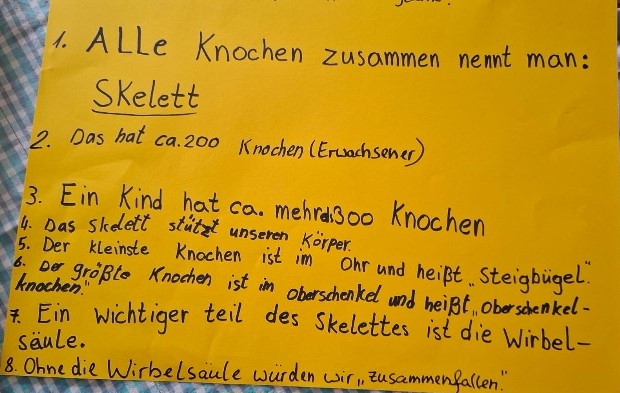 1. ALLe Knochen zusammen nennt man:
Skelett
2. Das hat ca. 200 Knochen (Erwachsener)
3. Ein Kind hat ca. mehr als 300 Knochen
4. Das Skelett stützt unseren Körper.
5. Der kleinste Knochen ist im Ohr und heißt „Steigbügel“.
6. Der größte Knochen ist im Oberschenkel und heißt „Oberschenkel-
knochen.“
7. Ein wichtiger teil des Skelettes ist die Wirbel-
säule.
8. Ohne die Wirbelsäule würden wir „zusammenfallen.“